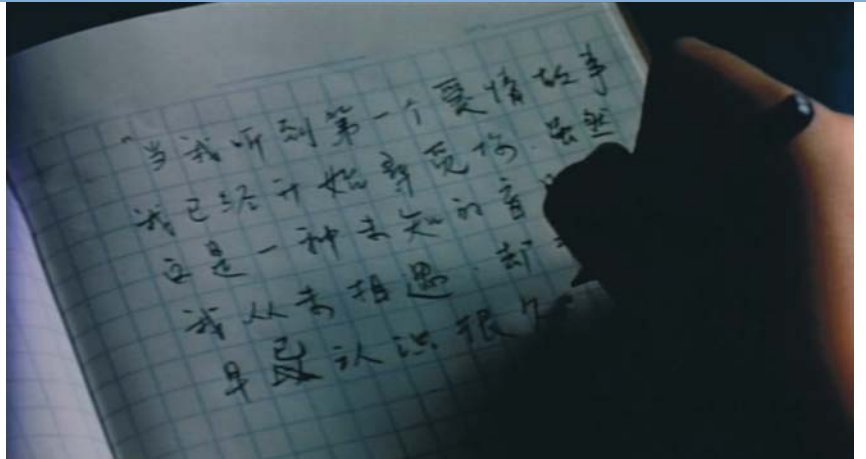 "当我听到第一个爱情故事
我已经开始寻觅你.虽然
这是一种未知的盲
我从未相遇.却
早已认识很久